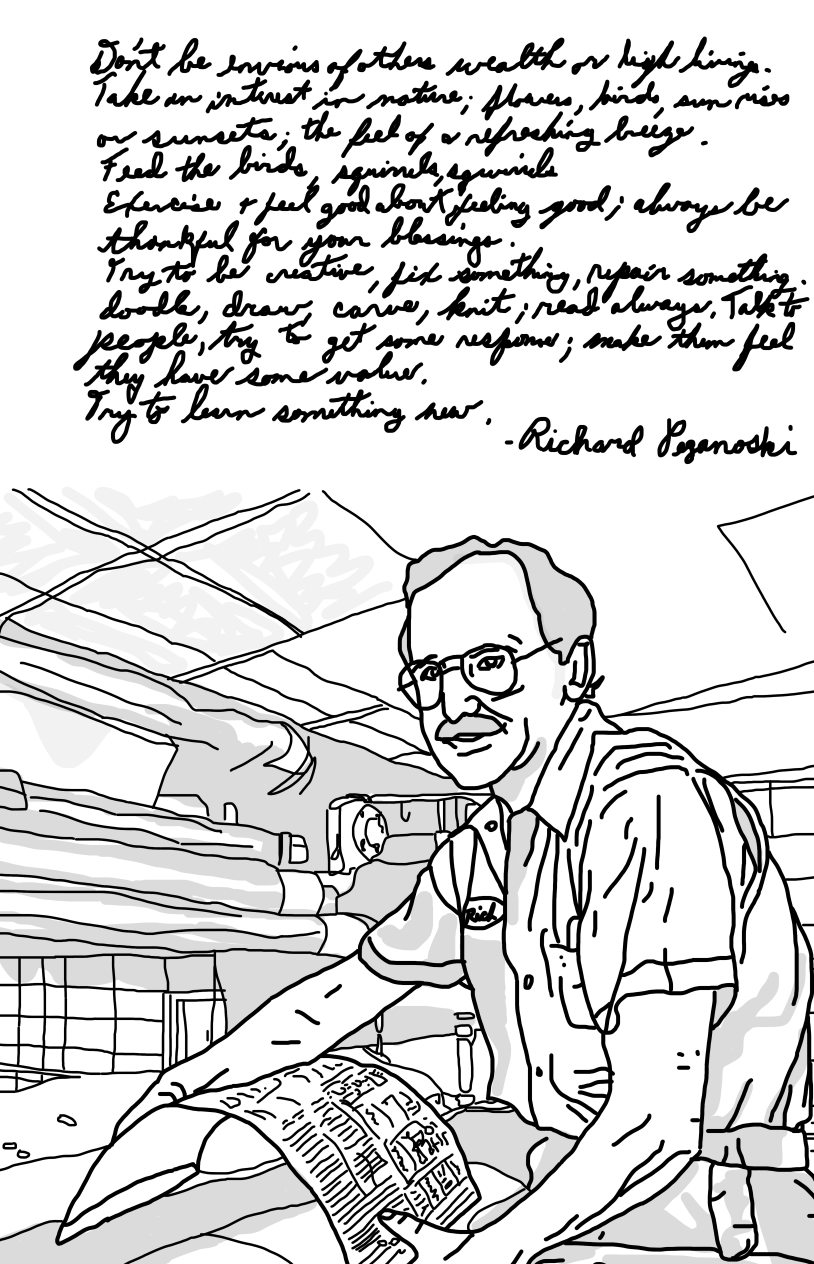 Don't be envious of others wealth or high living.
Take an interest in nature; flowers, birds, sun rises
or sunsets; the feel of a refreshing breeze.
Feed the birds, squirrels, squirrels
Exercise + feel good about feeling good; always be
thankful for your blessings.
Try to be creative, fix something, repair something.
doodle, draw, carve, knit; read always. Talk to
people, try to get some response; make them feel
they have some value.
Try to learn something new.
-Richard Pezanoski
Rich